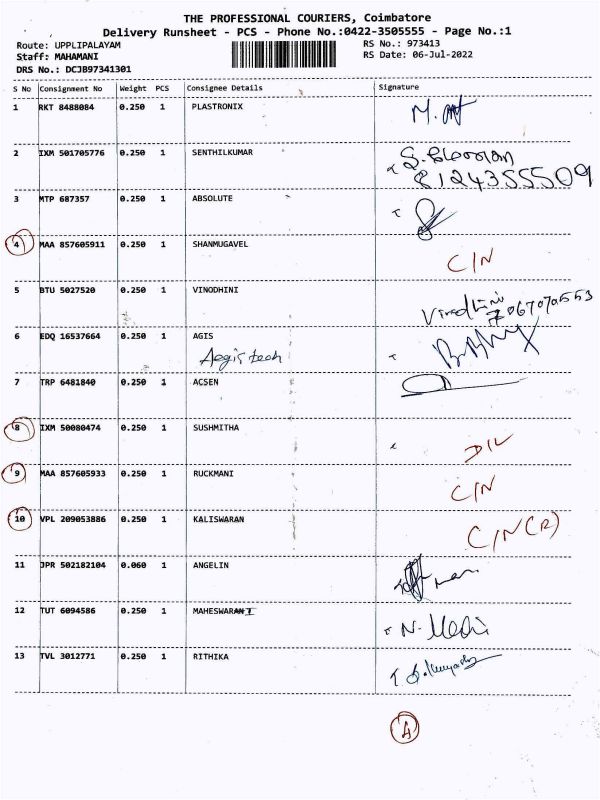 THE PROFESSIONAL COURIERS, Coimbatore
Delivery Runsheet - PCS - Phone No.:0422-3505555 - Page No.:1
Route: UPPLIPALAYAM RS No.: 973413
Staff: MAHAMANI RS Date: 06-Jul-2022
DRS No.: DCJB97341301
S No Consignment No Weight PCS Consignee Details Signature
1 RKT 8488084 0.250 1 PLASTRONIX
2 IXM 501705776 0.250 1 SENTHILKUMAR
8124355509
3 MTP 687357 0.250 1 ABSOLUTE
4 MAA 857605911 0.250 1 SHANMUGAVEL C/N
5 BTU 5027520 0.250 1 VINODHINI Vinodhini
7067070553
6 EDQ 16537664 0.250 1 AGIS
Aegis tech
7 TRP 6481840 0.250 1 ACSEN
8 IXM 50080474 0.250 1 SUSHMITHA D/L
9 MAA 857605933 0.250 1 RUCKMANI C/N
10 VPL 209053886 0.250 1 KALISWARAN C/N(R)
11 JPR 502182104 0.060 1 ANGELIN
12 TUT 6094586 0.250 1 MAHESWARI
13 TVL 3012771 0.250 1 RITHIKA
A